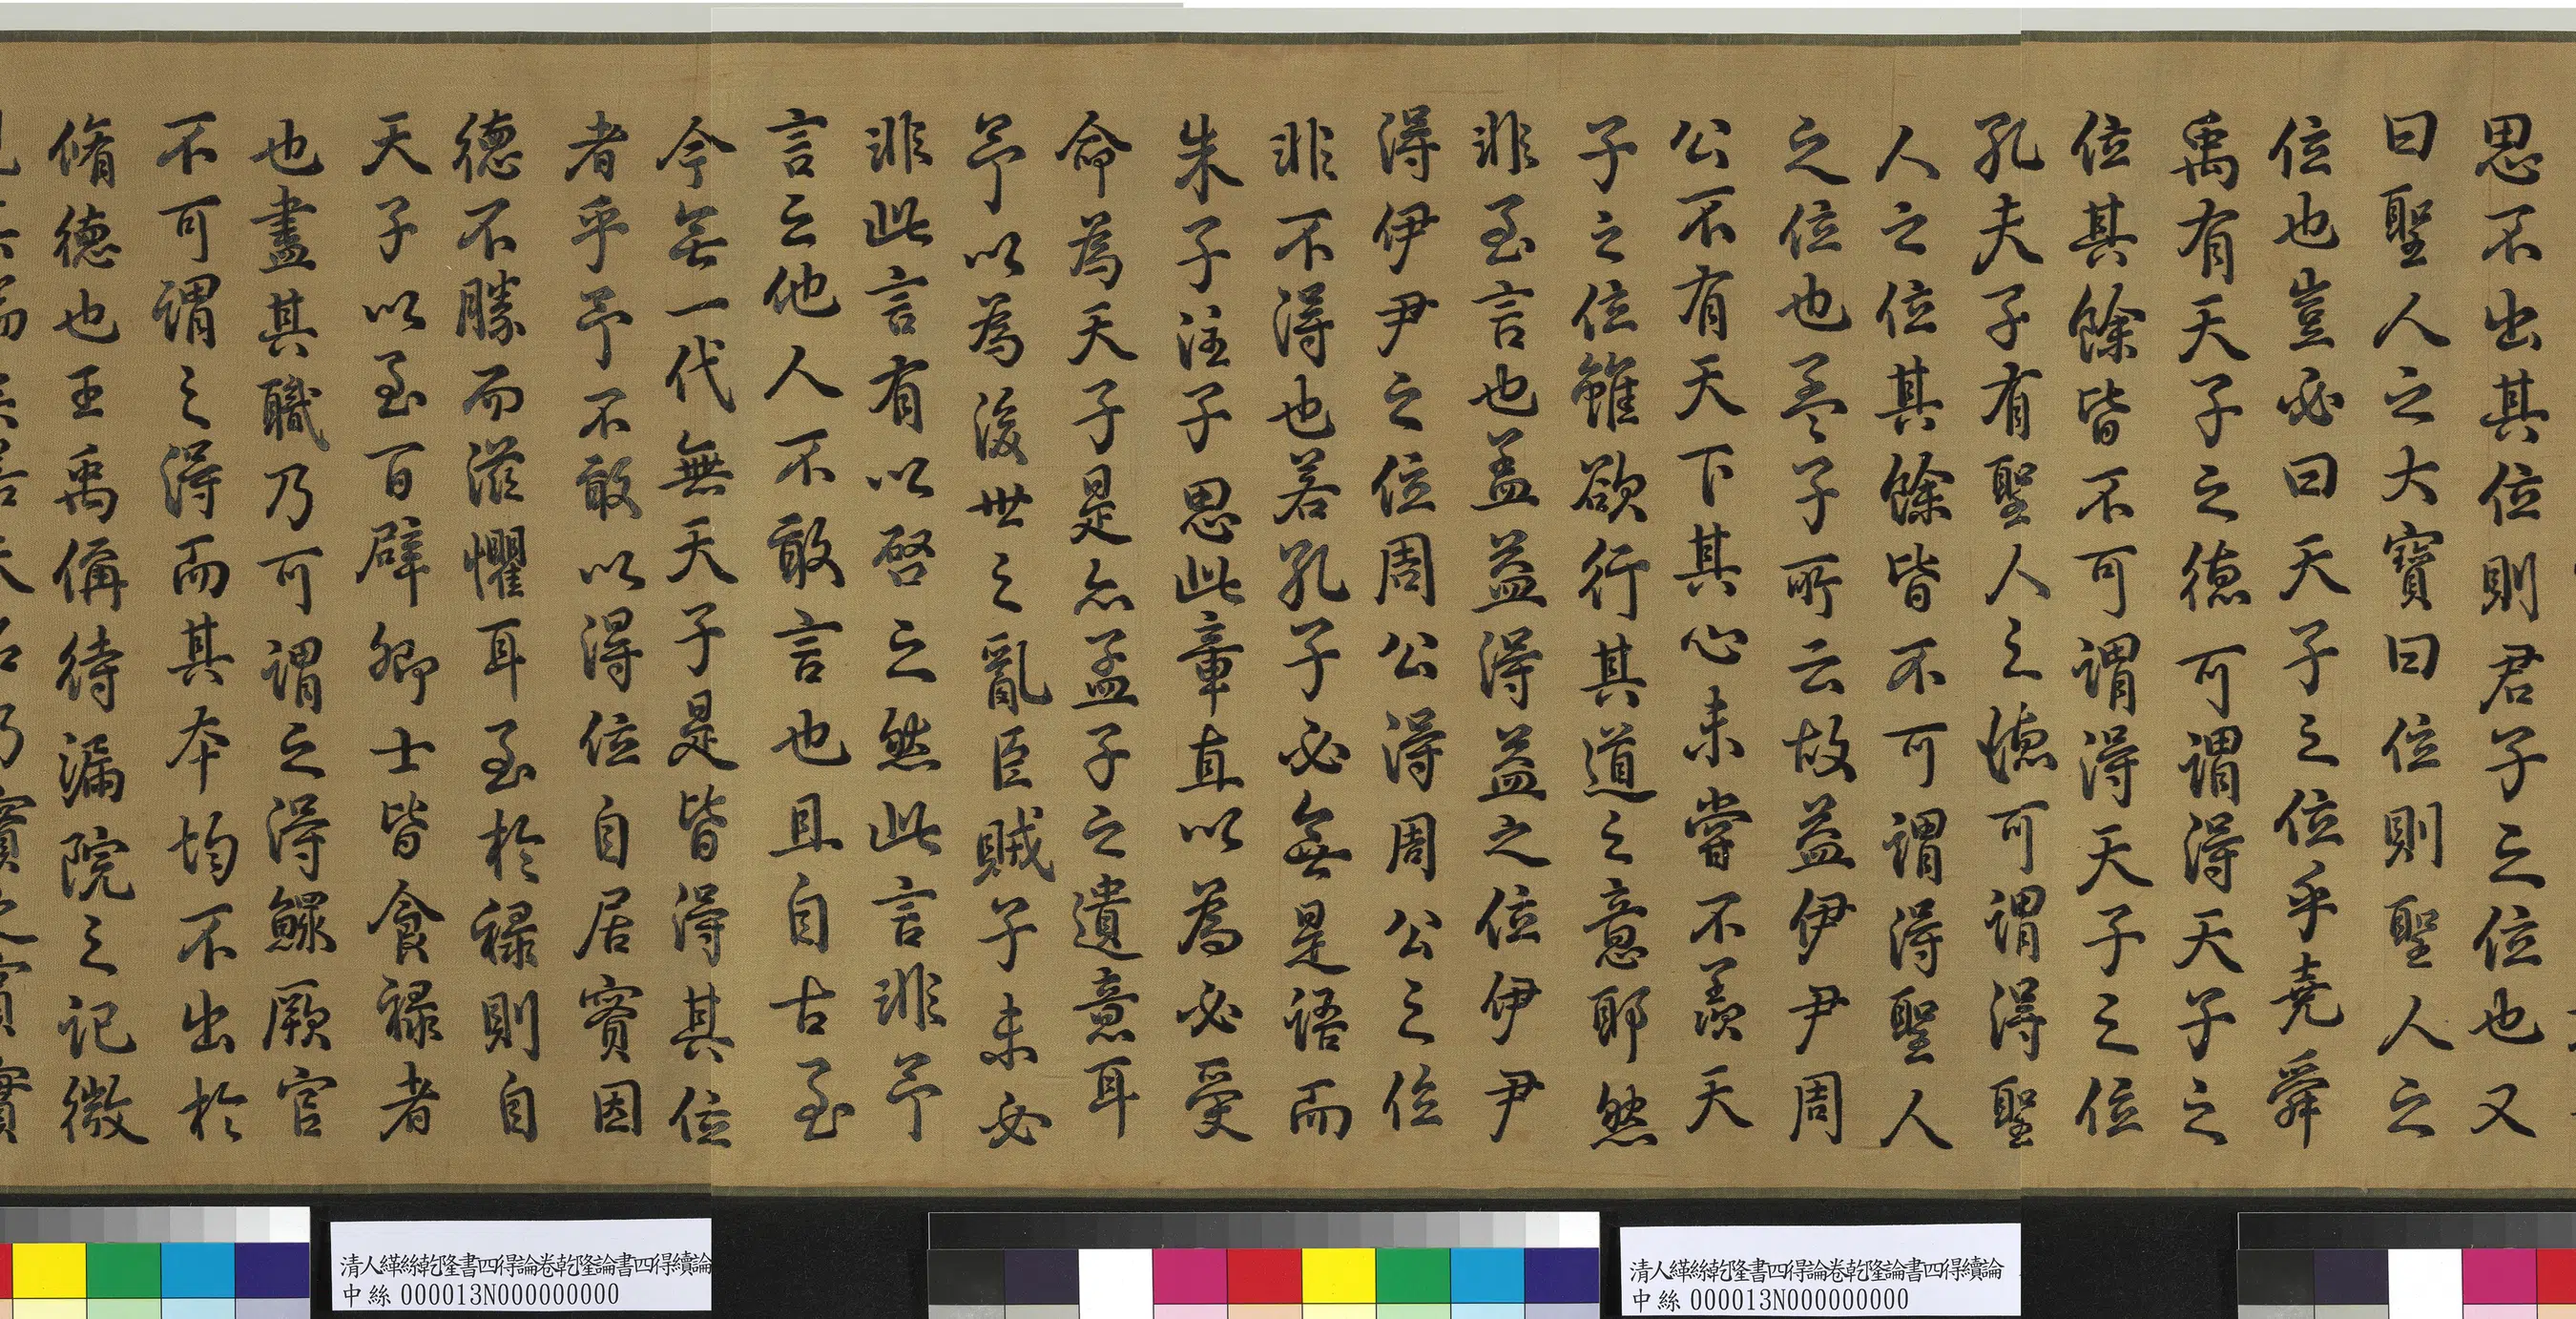 思不出其位則君子之位也又
曰聖人之大寶曰位則聖人之
位也豈必曰天子之位乎堯舜
禹有天子之德可謂得天子之
位其餘皆不可謂得天子之位
孔夫子有聖人之德可謂得聖
人之位其餘皆不可謂得聖人
之位也孟子所云故益伊尹周
公不有天下其心未嘗不羨天
子之位雖欲行其道之意耶然
非至言也盖益得益之位伊尹
得伊尹之位周公得周公之位
非不得也若孔子必無是語而
朱子注子思此章直以為必受
命為天子是亦孟子之遺意耳
予以為後世之亂臣賊子未必
非此言有以啓之然此言非予
言之他人不敢言也且自古至
今無一代無天子是皆得其位
者乎予不敢以得位自居實因
德不勝而滋懼耳至於祿則自
天子以至百辟卿士皆食祿者
也盡其職乃可謂之得鰥厥官
不可謂之得而其本均不出於
脩德也王禹偁待漏院之記微
清人緙絲乾隆書四得論卷乾隆論書四得續論
中絲 000013N000000000
清人緙絲乾隆書四得論卷乾隆論書四得續論
中絲 000013N000000000